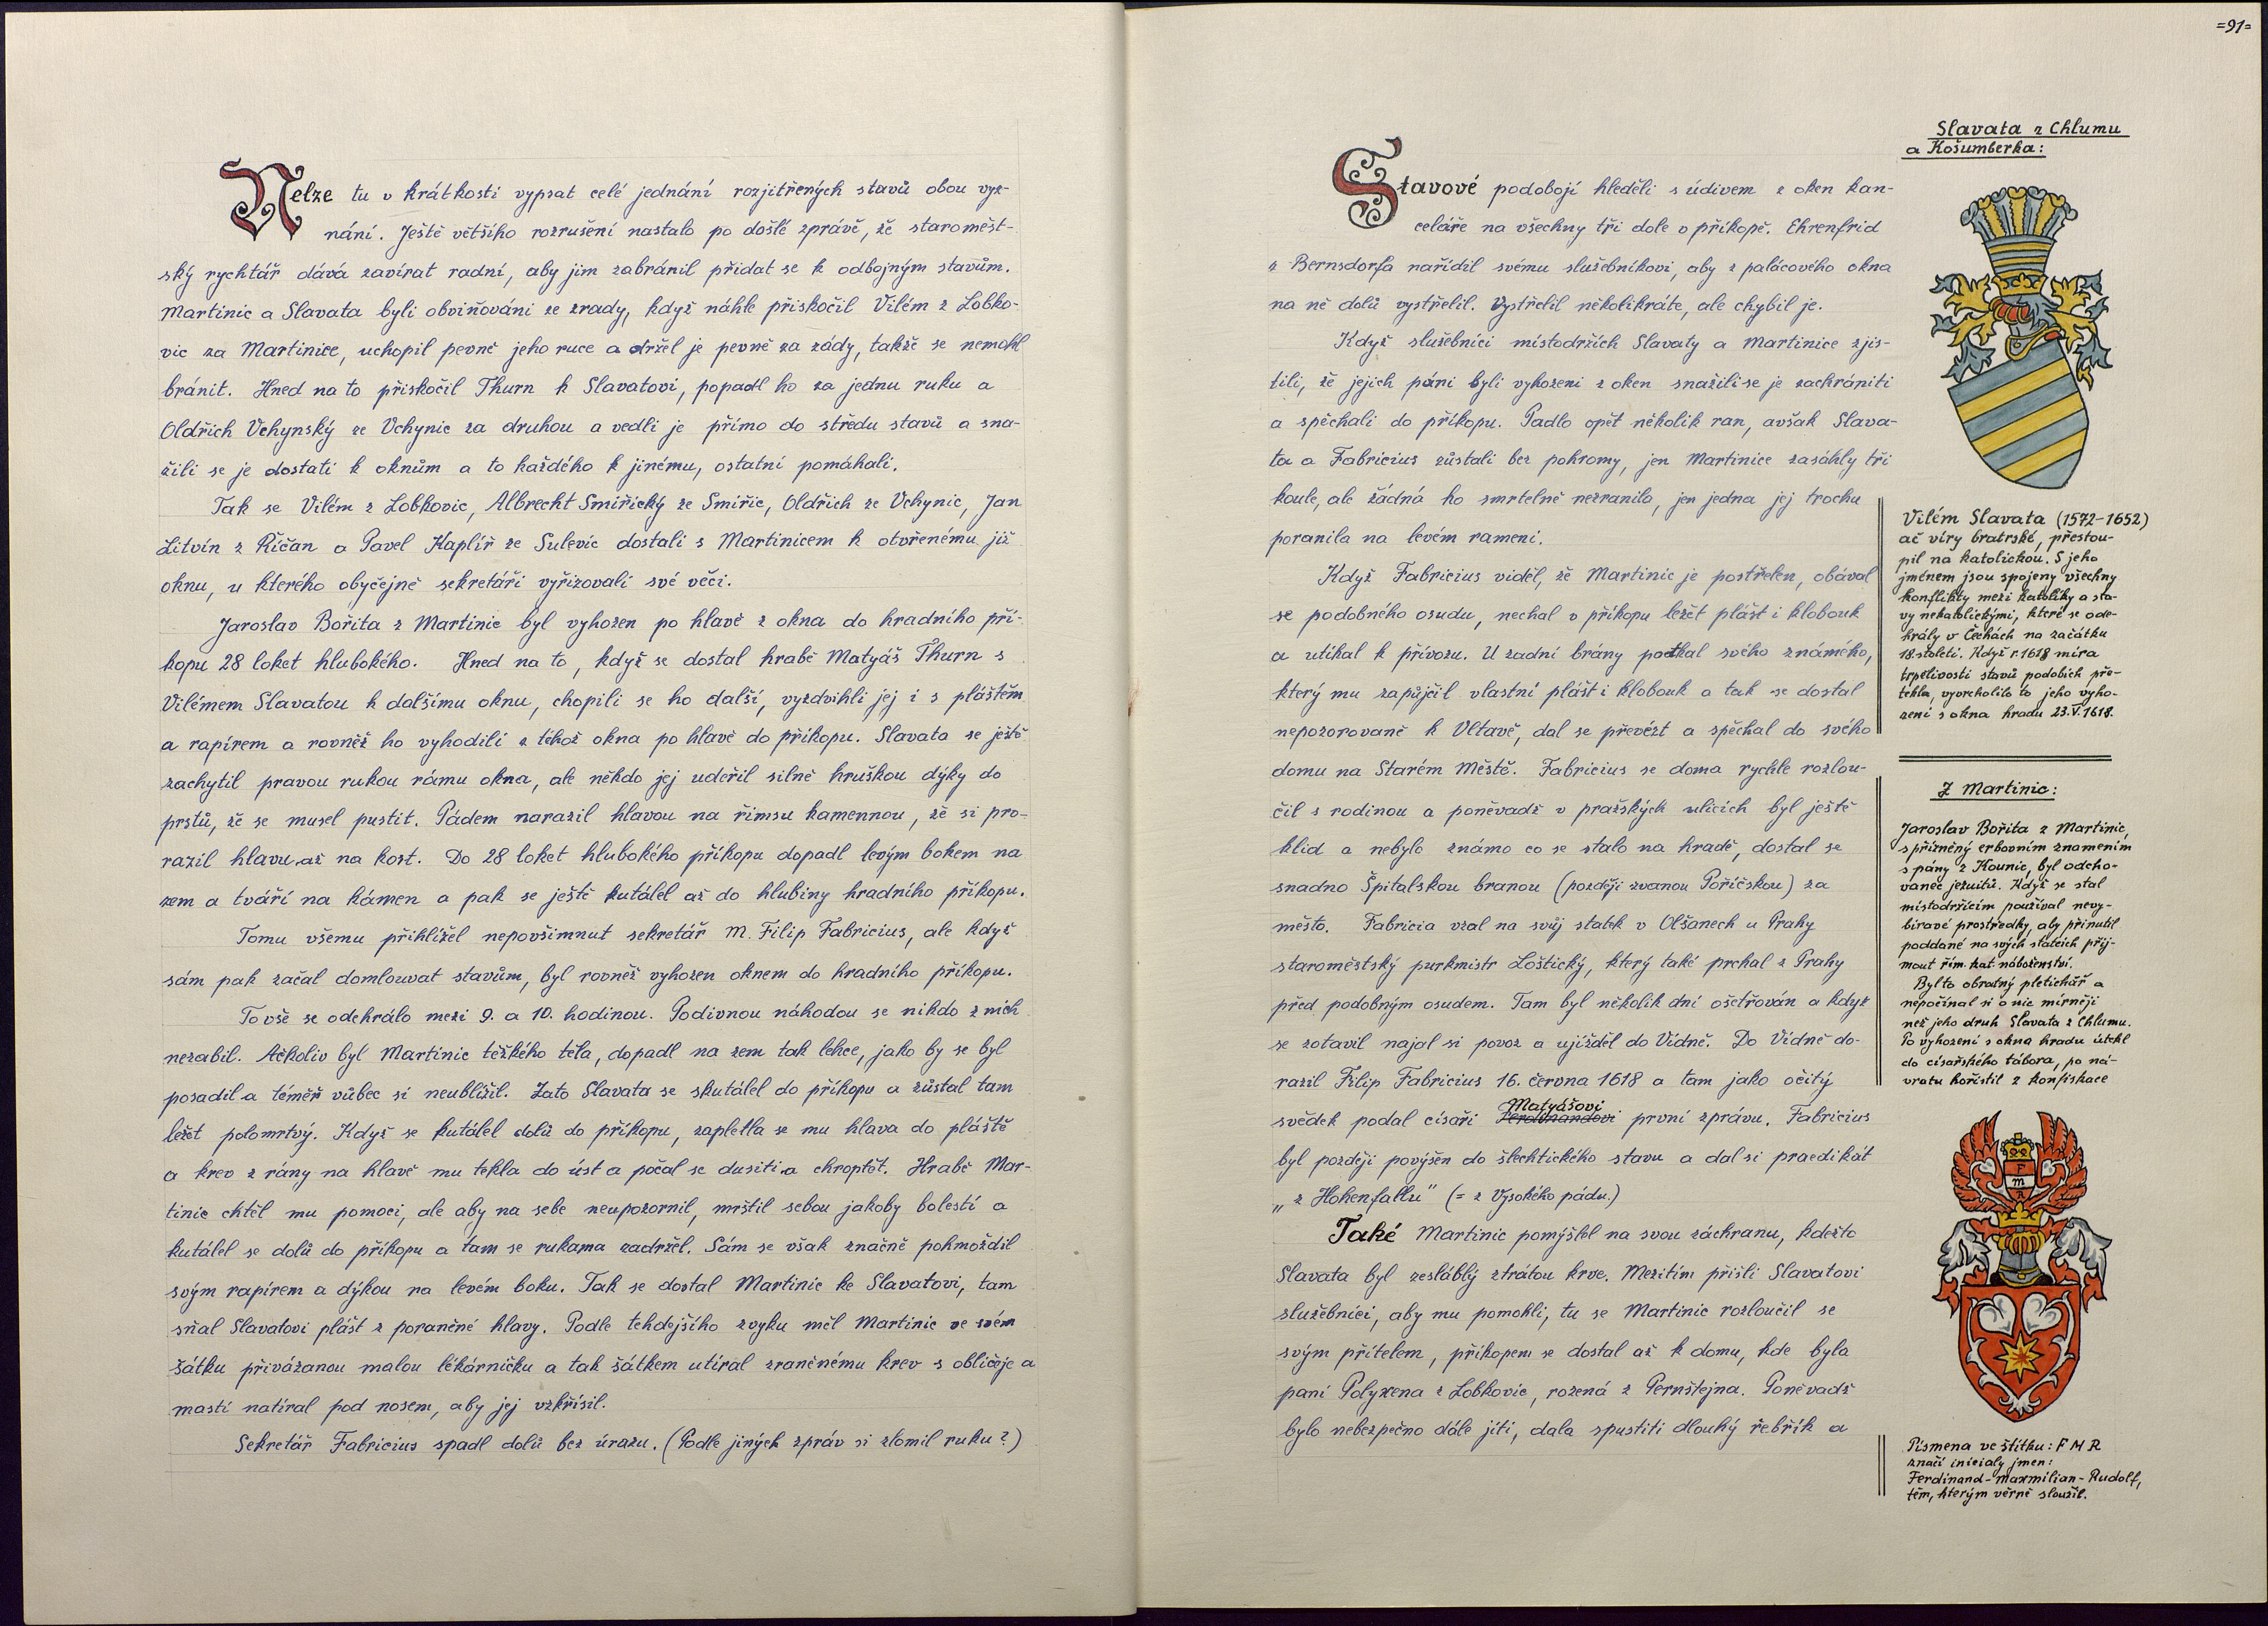 Nelze tu v krátkosti vypsat celé jednání rozjitřených stavů obou vyz-
nání. Ještě většího rozrušení nastalo po došlé zprávě, že staroměst-
ský rychtář dává zavírat radní, aby jim zabránil přidat se k odbojným stavům.
Martinic a Slavata byli obviňováni ze zrady, když náhle přiskočil Vilém z Lobko-
vic za Martinice, uchopil pevně jeho ruce a držel je pevně za zády, takže se nemohl
bránit. Hned na to přiskočil Thurn k Slavatovi, popadl ho za jednu ruku a
Oldřich Vchynský ze Vchynic za druhou a vedli je přímo do středu stavů a sna-
žili se je dostati k oknům a to každého k jinému, ostatní pomáhali.
Tak se Vilém z Lobkovic, Albrecht Smiřický ze Smiřic, Oldřich ze Vchynic, Jan
Litvín z Říčan a Pavel Kaplíř ze Sulevic dostali s Martinicem k otvřenému již
oknu, u kterého obyčejně sekretáři vyřizovali své věci.
Jaroslav Bořita z Martinic byl vyhozen po hlavě z okna do hradního pří-
kopu 28 loket hlubokého. Hned na to, když se dostal hrabě Matyáš Thurn s
Vilémem Slavatou k dalšímu oknu, chopili se ho další, vyzdvihli jej i s pláštěm
a rapírem a rovněž ho vyhodili z téhož okna po hlavě do příkopu. Slavata se ještě
zachytil pravou rukou rámu okna, ale někdo jej udeřil silně hruškou dýky do
prstů, že se musel pustit. Pádem narazil hlavou na římsu kamennou, že si pro-
razil hlavu až na kost. Do 28 loket hlubokého příkopu dopadl levým bokem na
zem a tváří na kámen a pak se ještě kutálel až do hlubiny hradního příkopu.
Tomu všemu přihlížel nepovšimnut sekretář M. Filip Fabricius, ale když
sám pak začal domlouvat stavům, byl rovněž vyhozen oknem do hradního příkopu.
To vše se odehrálo mezi 9. a 10. hodinou. Podivnou náhodou se nikdo z nich
nezabil. Ačkoliv byl Martinic těžkého těla, dopadl na zem tak lehce, jako by se byl
posadil a téměř vůbec si neublížil. Zato Slavata se skutálel do příkopu a zůstal tam
ležet polomrtvý. Když se kutálel dolů do příkopu, zapletla se mu hlava do pláště
a krev z rány na hlavě mu tekla do úst a počal se dusiti a chroptět. Hrabě Mar-
tinic chtěl mu pomoci, ale aby na sebe neupozornil, mrštil sebou jakoby bolestí a
kutálel se dolů do příkopu a tam se rukama zadržel. Sám se však značně pohmoždil
svým rapírem a dýkou na levém boku. Tak se dostal Martinic ke Slavatovi, tam
sňal Slavatovi plášť z poraněné hlavy. Podle tehdejšího zvyku měl Martinic ve svém
šátku přivázanou malou lékárničku a tak šátkem utíral zraněnému krev s obličeje a
mastí natíral pod nosem, aby jej vzkřísil.
Sekretář Fabricius spadl dolů bez úrazu. (Podle jiných zpráv si zlomil ruku?)
=91=
Stavové podobojí hleděli s údivem z oken kan-
celáře na všechny tři dole v příkopě. Ehrenfrid
z Bernsdorfa nařídil svému služebníkovi, aby z palácového okna
na ně dolů vystřelil. Vystřelil několikráte, ale chybil je.
Když služebníci místodržích Slavaty a Martinice zjis-
tili, že jejich páni byli vyhozeni z oken snažili se je zachrániti
a spěchali do příkopu. Padlo opět několik ran, avšak Slava-
ta a Fabricius zůstali bez pohromy, jen Martinice zasáhly tři
koule, ale žádná ho smrtelně nezranila, jen jedna jej trochu
poranila na levém rameni.
Když Fabricius viděl, že Martinic je postřelen, obával
se podobného osudu, nechal v příkopu ležet plášť i klobouk
a utíkal k přívozu. U zadní brány potkal svého známého,
který mu zapůjčil vlastní plášť i klobouk a tak se dostal
nepozorovaně k Vltavě, dal se převézt a spěchal do svého
domu na Starém Městě. Fabricius se doma rychle rozlou-
čil s rodinou a poněvadž v pražských ulicích byl ještě
klid a nebylo známo co se stalo na hradě, dostal se
snadno Špitalskou branou (později zvanou Poříčskou) za
město. Fabricia vzal na svůj statek v Olšanech u Prahy
staroměstský purkmistr Loštický, který také prchal z Prahy
před podobným osudem. Tam byl několik dní ošetřován a když
se zotavil najal si povoz a ujížděl do Vídně. Do Vídně do-
razil Filip Fabricius 16. června 1618 a tam jako očitý
Matyášovi
svědek podal císaři Ferdinandovi první zprávu. Fabricius
byl později povýšen do šlechtického stavu a dal si praedikát
„z Hohenfallu" (= z Vysokého pádu.)
Také Martinic pomýšlel na svou záchranu, kdežto
Slavata byl zesláblý ztrátou krve. Mezitím přišli Slavatovi
služebníci, aby mu pomohli, tu se Martinic rozloučil se
svým přítelem, příkopem se dostal až k domu, kde byla
paní Polyxena z Lobkovic, rozená z Pernštejna. Poněvadž
bylo nebezpečno dále jíti, dala spustiti dlouhý řebřík a
Slavata z Chlumu
a Košumberka:
Vilém Slavata (1572-1652)
ač víry bratrské, přestou-
pil na katolickou. S jeho
jménem jsou spojeny všechny
konflikty mezi katolíky a sta-
vy nekatolickými, které se ode-
hrály v Čechách na začátku
18. století. Když r. 1618 míra
trpělivosti stavů podobích pře-
tekla, vyvrcholilo to jeho vyho-
zení s okna hradu 23.V.1618.
Z Martinic:
Jaroslav Bořita z Martinic,
spřízněný erbovním znamením
s pány z Kounic, byl odcho-
vanec jezuitů. Když se stal
místodržícím používal nevy-
bíravé prostředky, aby přinutil
poddané na svých statcích přij-
mout řím. kat. náboženství.
Byl to obratný pletichář a
nepočínal si o nic mírněji
než jeho druh Slavata z Chlumu.
Po vyhození s okna hradu utekl
do císařského tábora, po ná-
vratu kořistil z konfiskace
F
M
R
Písmena ve štítku: F M R
značí iniciály jmen:
Ferdinand-Maxmilian-Rudolf,
těm, kterým věrně sloužil.